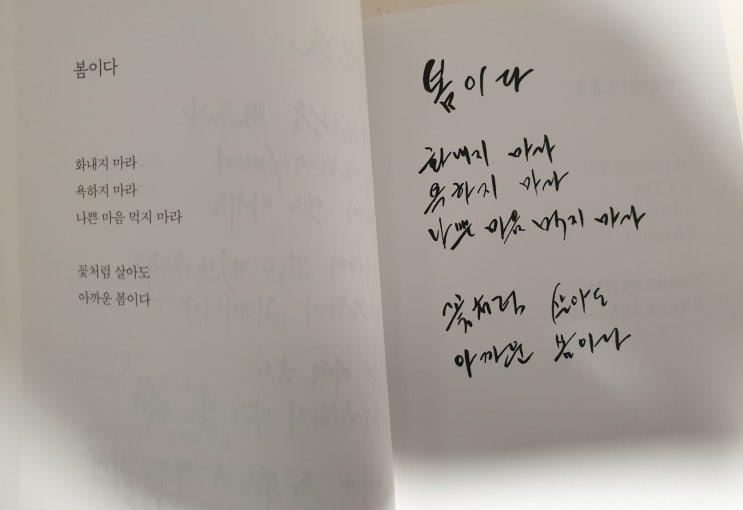 봄이다
화내지 마라
욕하지 마라
나쁜 마음 먹지 마라
꽃처럼 살아도
아까운 봄이다
봄이다
화내지 마라
욕하지 마라
나쁜 마음 먹지 마라
꽃처럼 살아도
아까운 봄이다